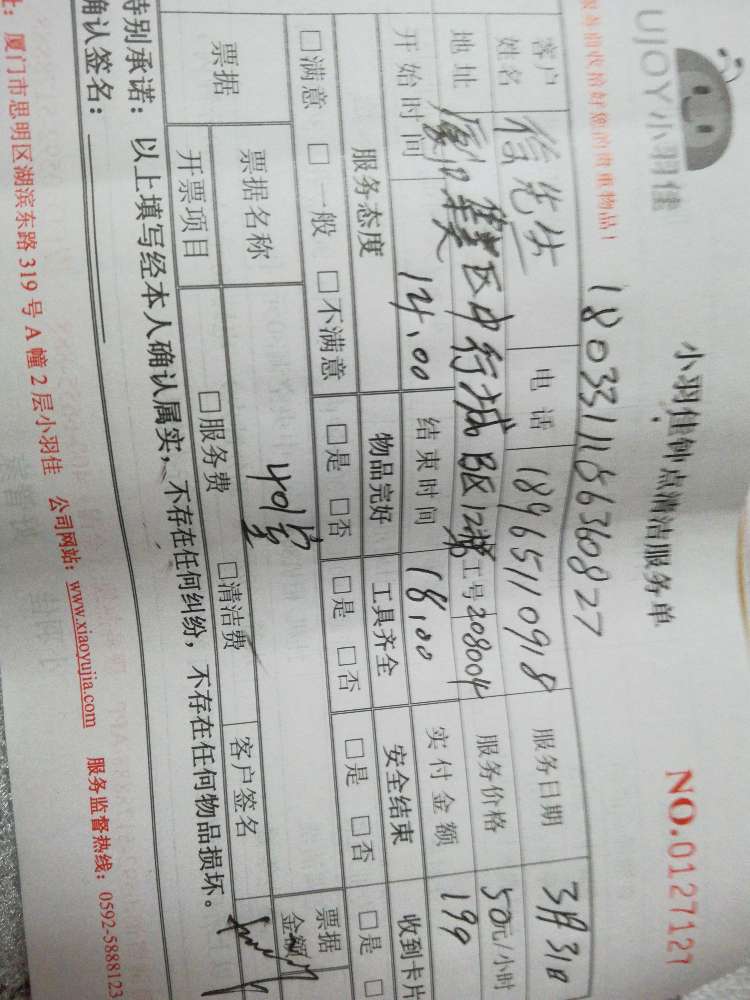 UJOY小羽佳
小羽佳钟点清洁服务单
NO.0127127
服务前收拾好您的贵重物品！
1803311186360827
客户姓名 信先生 电话 18965110918 服务日期 3月31日
地址 厦门集美区中行城B区12楼 工号 208004 服务价格 50元/小时
开始时间 14:00 结束时间 18:00 实付金额 199
服务态度 物品完好 工具齐全 安全结束 收到卡片
□满意 □一般 □不满意 □是 □否 □是 □否 □是 □否 □是
票据 票据名称 票据金额
开票项目 □服务费 □清洁费 客户签名
特别承诺：以上填写经本人确认属实，不存在任何纠纷，不存在任何物品损坏。
确认签名：
址：厦门市思明区湖滨东路319号A幢2层小羽佳 公司网站：www.xiaoyujia.com 服务监督热线：0592-5888123